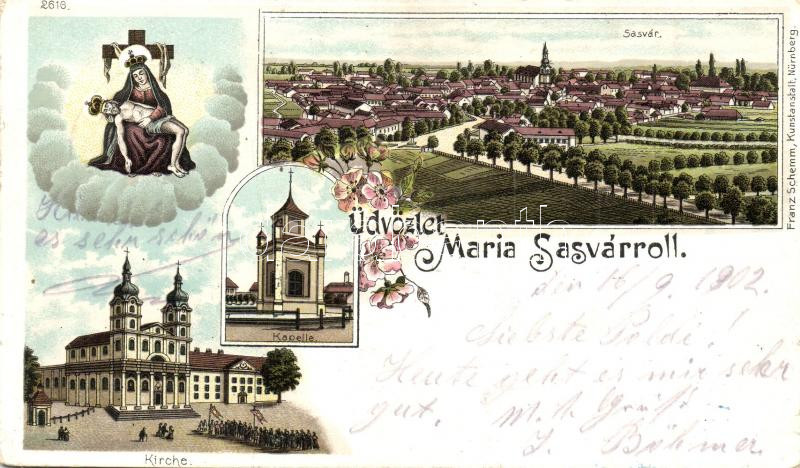 2616.
Sasvár.
Franz Schemm, Kunstanstalt, Nürnberg.
Üdvözlet
Maria Sasvárroll.
Kapelle.
Kirche.
es sehr schön
den 16/9. 1902.
Liebste Poldi!
Heute geht es mir sehr
gut. M. h. Grüße
J. Böhmer